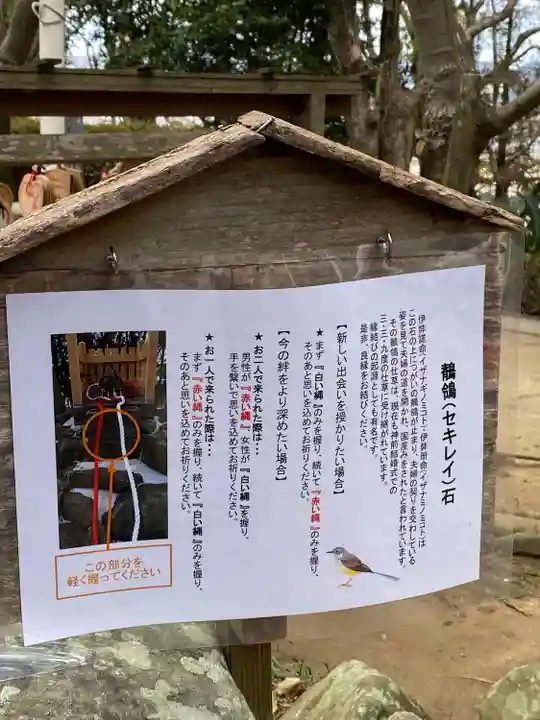 鶺鴒(セキレイ)石
伊弉諾命(イザナギノミコト)・伊弉冊命(イザナミノミコト)は
この石の上につがいの鶺鴒が止まり、夫婦の契りを交わしている
姿を見て夫婦の道を開かれ、国産みをされたと言われています。
その鶺鴒の仕草は、現在も神前結婚式での
三・三・九度の仕草に受け継がれています。
縁結びの起源としても有名です。
是非、良縁をお結びください。
【新しい出会いを授かりたい場合】
★まず『白い縄』のみを握り、続いて『赤い縄』のみを握り、
そのあと思いを込めてお祈りください。
【今の絆をより深めたい場合】
★お二人で来られた際は…
男性が『赤い縄』、女性が『白い縄』を握り、
手を繋いで思いを込めてお祈りください。
★お一人で来られた際は…
まず『赤い縄』のみを握り、続いて『白い縄』のみを握り、
そのあと思いを込めてお祈りください。
この部分を
軽く握ってください